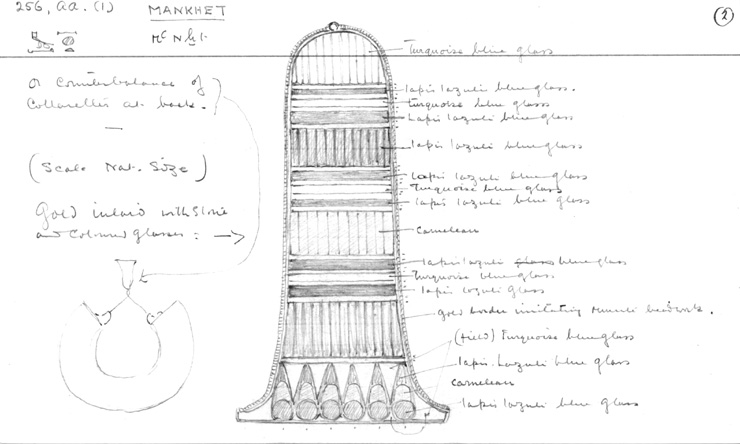 256, aa. (1)
MANKHET
②
or Counterbalance of
Collarettes at back.
(Scale Nat. Size)
Gold inlaid with Stone
and Coloured glasses: →
Turquoise blue glass
lapis lazuli blue glass.
Turquoise blue glass
Lapis lazuli blue glass
lapis lazuli blue glass
lapis lazuli blue glass
Turquoise blue glass
lapis lazuli blue glass
Carnelean
lapis lazuli glass blue glass
Turquoise blue glass
lapis lazuli glass
gold border imitating beadwork.
(Field) Turquoise blue glass
lapis-lazuli blue glass
Carnelean
lapis lazuli blue glass